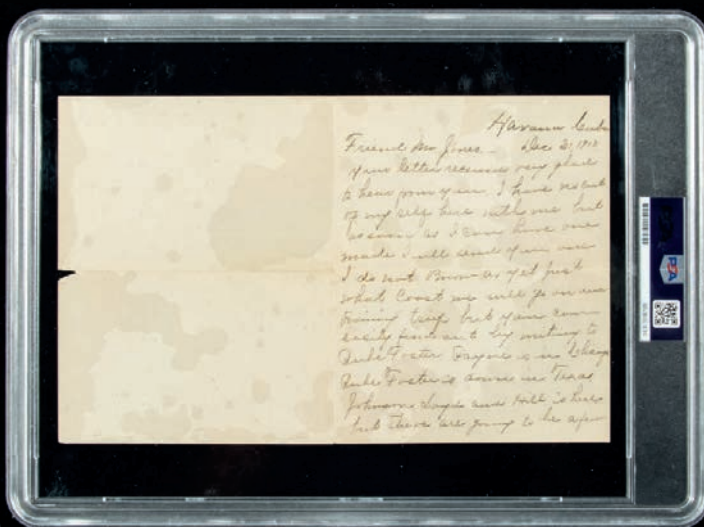 Havana Cuba
Friend Mr Jones - Dec 21, 1912
Your letter received very glad
to hear from you. I have no cut
of my self here with me but
as soon as I can have one
made I will send you one
I do not know as yet just
what Coast we will go on our
training trip but you can
easily find out by writing to
Rube Foster Payne is in Chicago
Rube Foster is down in Texas
Johnson Lloyd and Hill is here
but there are going to be a few
PSA